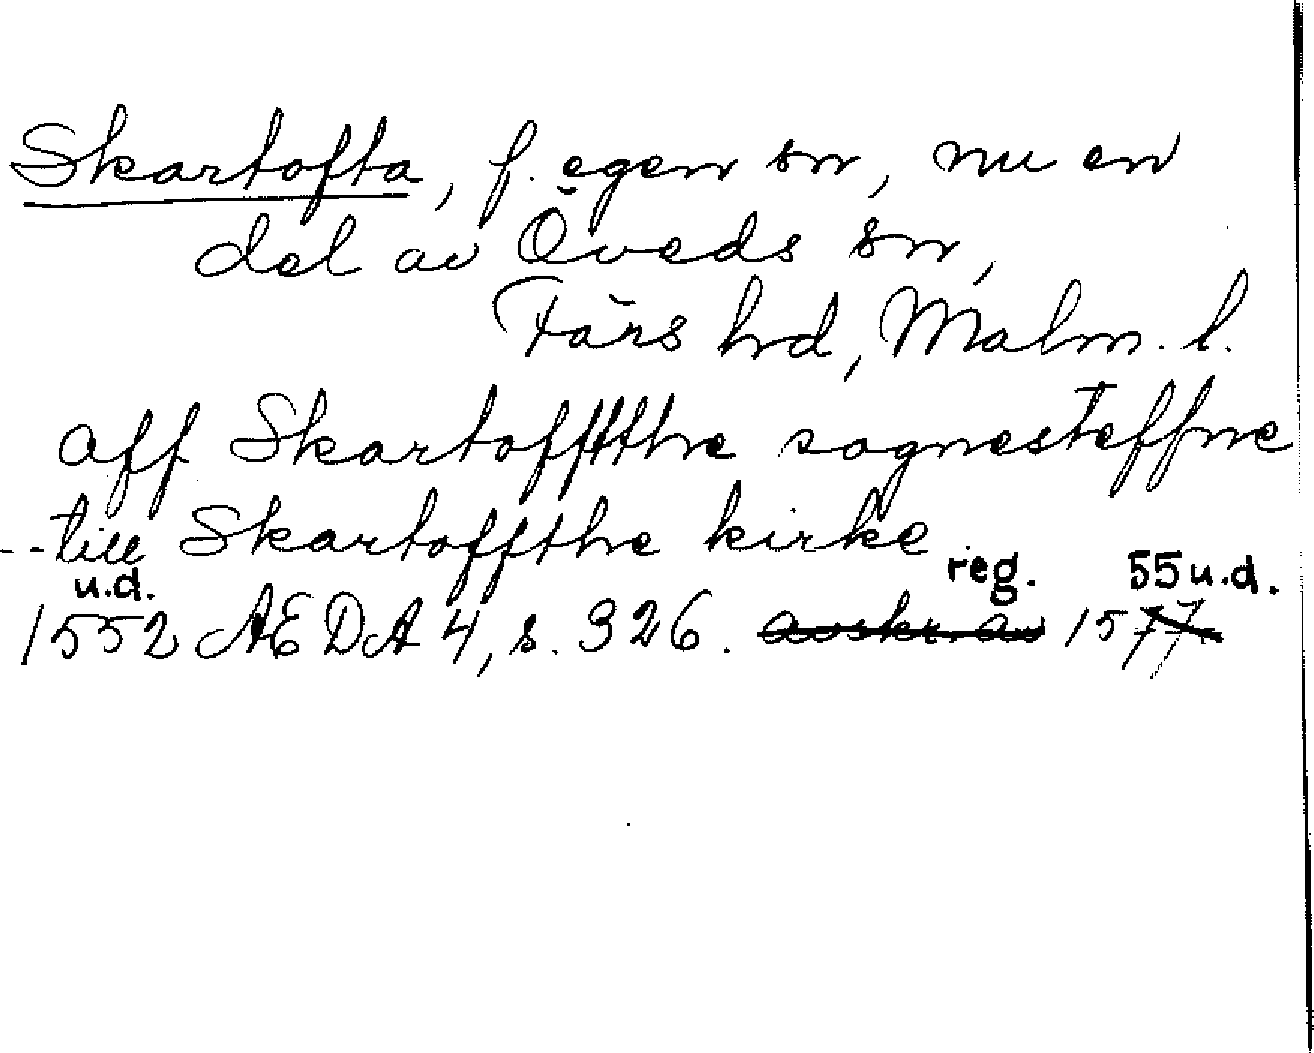 Skartofta, f. egen sn, nu en
del av Öveds sn,
Färs hd, Malm. l.
aff Skartoffthe sognesteffne
-- till Skartoffthe kirke
u.d. reg. 55 u.d.
1552 ÆDA 4, s. 326. avskr. av 1577